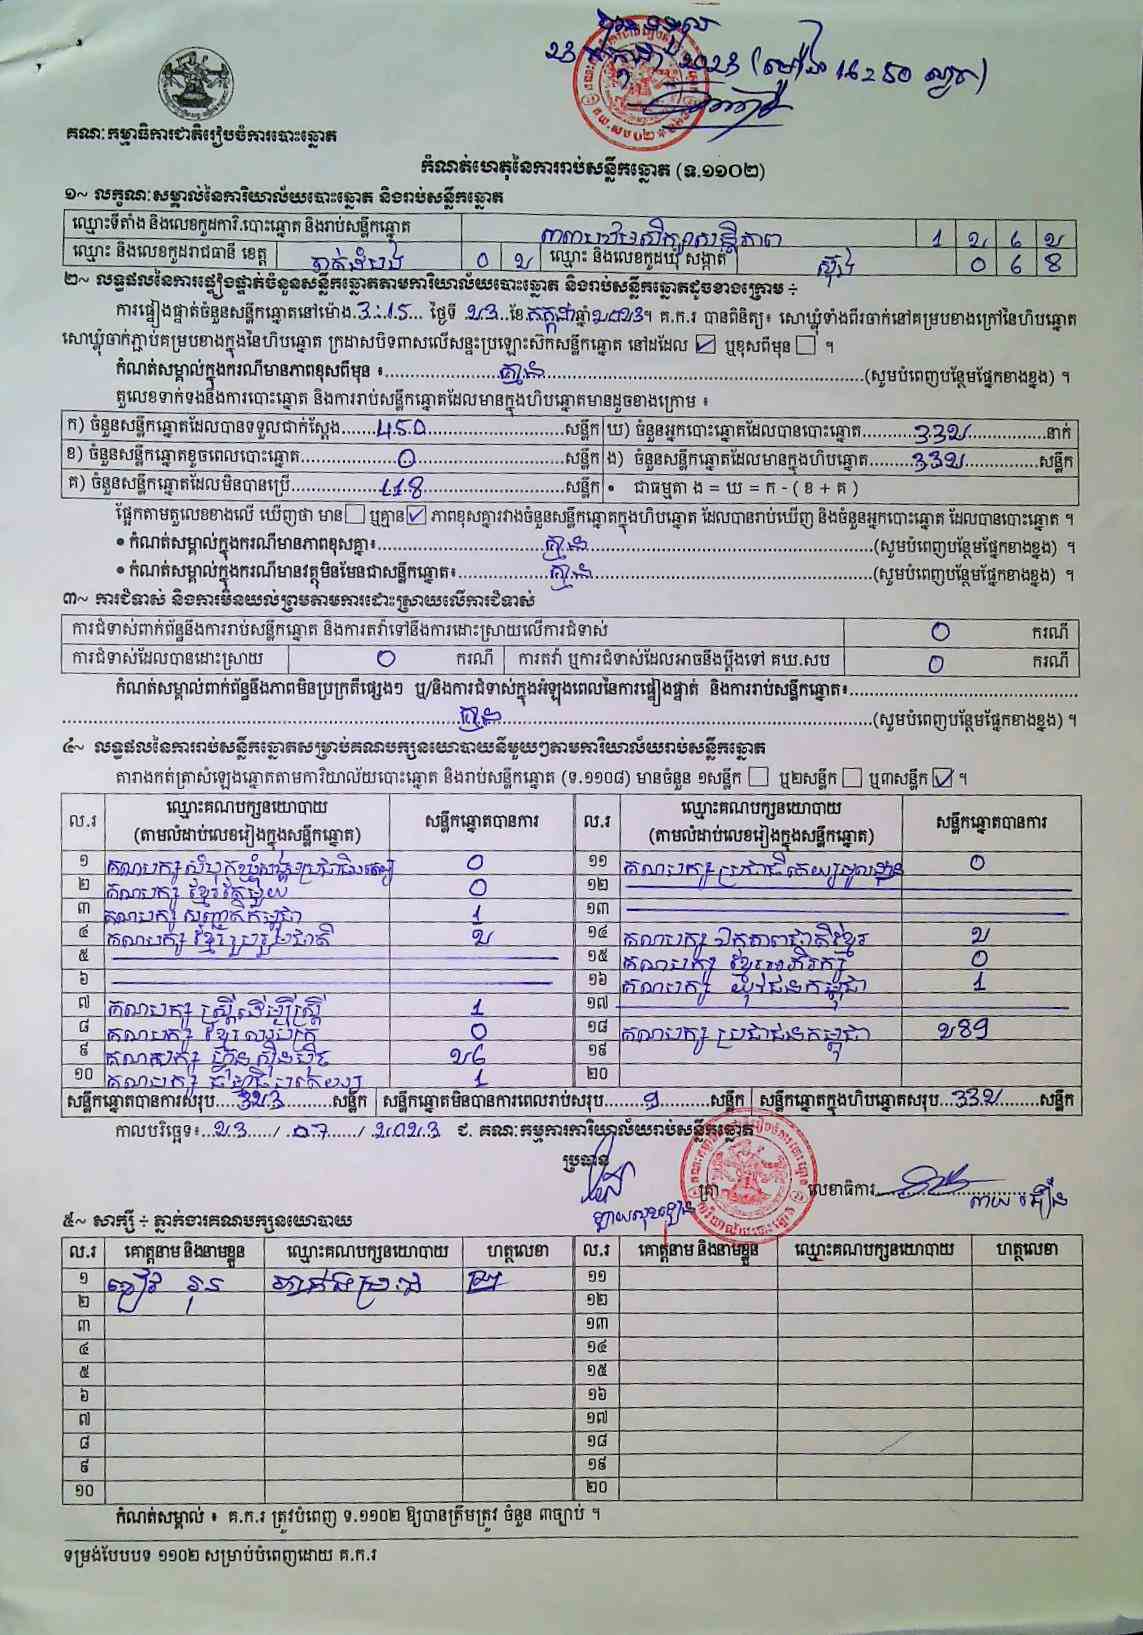 23 កក្កដា 2023 (ម៉ោង 16:50 នាទី)
គណៈកម្មាធិការជាតិរៀបចំការបោះឆ្នោត
កំណត់ហេតុនៃការរាប់សន្លឹកឆ្នោត (ទ.១១០២)
១~ លក្ខណៈសម្គាល់នៃការិយាល័យបោះឆ្នោត និងរាប់សន្លឹកឆ្នោត
ឈ្មោះទីតាំង និងលេខកូដការិ.បោះឆ្នោត និងរាប់សន្លឹកឆ្នោត បឋមសិក្សាសន្តិភាព 1 2 6 2
ឈ្មោះ និងលេខកូដរាជធានី ខេត្ត បាត់ដំបង 0 2 ឈ្មោះ និងលេខកូដឃុំ សង្កាត់ ស៊ុង 0 6 8
២~ លទ្ធផលនៃការផ្ទៀងផ្ទាត់ចំនួនសន្លឹកឆ្នោតតាមការិយាល័យបោះឆ្នោត និងរាប់សន្លឹកឆ្នោតដូចខាងក្រោម ÷
ការផ្ទៀងផ្ទាត់ចំនួនសន្លឹកឆ្នោតនៅម៉ោង 3:15 ថ្ងៃទី 23 ខែ កក្កដា ឆ្នាំ 2023 ។ គ.ក.រ បានពិនិត្យ៖ សោឃ្លុំទាំងពីរចាក់នៅគម្របខាងក្រៅនៃហិបឆ្នោត
សោឃ្លុំចាក់ភ្ជាប់គម្របខាងក្នុងនៃហិបឆ្នោត ក្រដាសបិទពាសលើសន្ទះប្រឡោះសិកសន្លឹកឆ្នោត នៅដដែល ☑ ឬខុសពីមុន ☐ ។
កំណត់សម្គាល់ក្នុងករណីមានភាពខុសពីមុន ៖ គ្មាន (សូមបំពេញបន្ថែមផ្នែកខាងខ្នង) ។
តួលេខទាក់ទងនឹងការបោះឆ្នោត និងការរាប់សន្លឹកឆ្នោតដែលមានក្នុងហិបឆ្នោតមានដូចខាងក្រោម ៖
ក) ចំនួនសន្លឹកឆ្នោតដែលបានទទួលជាក់ស្តែង 450 សន្លឹក ឃ) ចំនួនអ្នកបោះឆ្នោតដែលបានបោះឆ្នោត 332 នាក់
ខ) ចំនួនសន្លឹកឆ្នោតខូចពេលបោះឆ្នោត 0 សន្លឹក ង) ចំនួនសន្លឹកឆ្នោតដែលមានក្នុងហិបឆ្នោត 332 សន្លឹក
គ) ចំនួនសន្លឹកឆ្នោតដែលមិនបានប្រើ 118 សន្លឹក • ជាធម្មតា ង = ឃ = ក - ( ខ + គ )
ផ្អែកតាមតួលេខខាងលើ ឃើញថា មាន ☐ ឬគ្មាន ☑ ភាពខុសគ្នារវាងចំនួនសន្លឹកឆ្នោតក្នុងហិបឆ្នោត ដែលបានរាប់ឃើញ និងចំនួនអ្នកបោះឆ្នោត ដែលបានបោះឆ្នោត ។
• កំណត់សម្គាល់ក្នុងករណីមានភាពខុសគ្នា៖ គ្មាន (សូមបំពេញបន្ថែមផ្នែកខាងខ្នង) ។
• កំណត់សម្គាល់ក្នុងករណីមានវត្ថុមិនមែនជាសន្លឹកឆ្នោត៖ គ្មាន (សូមបំពេញបន្ថែមផ្នែកខាងខ្នង) ។
៣~ ការជំទាស់ និងការមិនយល់ព្រមតាមការដោះស្រាយលើការជំទាស់
ការជំទាស់ពាក់ព័ន្ធនឹងការរាប់សន្លឹកឆ្នោត និងការតវ៉ាទៅនឹងការដោះស្រាយលើការជំទាស់ 0 ករណី
ការជំទាស់ដែលបានដោះស្រាយ 0 ករណី ការតវ៉ា ឬការជំទាស់ដែលអាចនឹងប្តឹងទៅ គឃ.សប 0 ករណី
កំណត់សម្គាល់ពាក់ព័ន្ធនឹងភាពមិនប្រក្រតីផ្សេងៗ ឬ/និងការជំទាស់ក្នុងអំឡុងពេលនៃការផ្ទៀងផ្ទាត់ និងការរាប់សន្លឹកឆ្នោត៖
គ្មាន (សូមបំពេញបន្ថែមផ្នែកខាងខ្នង) ។
៤~ លទ្ធផលនៃការរាប់សន្លឹកឆ្នោតសម្រាប់គណបក្សនយោបាយនីមួយៗតាមការិយាល័យរាប់សន្លឹកឆ្នោត
តារាងកត់ត្រាសំឡេងឆ្នោតតាមការិយាល័យបោះឆ្នោត និងរាប់សន្លឹកឆ្នោត (ទ.១១០៨) មានចំនួន ១សន្លឹក ☐ ឬ២សន្លឹក ☐ ឬ៣សន្លឹក ☑ ។
ល.រ ឈ្មោះគណបក្សនយោបាយ (តាមលំដាប់លេខរៀងក្នុងសន្លឹកឆ្នោត) សន្លឹកឆ្នោតបានការ ល.រ ឈ្មោះគណបក្សនយោបាយ (តាមលំដាប់លេខរៀងក្នុងសន្លឹកឆ្នោត) សន្លឹកឆ្នោតបានការ
១ គណបក្ស សំបុកឃ្មុំសង្គមប្រជាធិបតេយ្យ 0 ១១ គណបក្ស ប្រជាធិបតេយ្យមូលដ្ឋាន 0
២ គណបក្ស ខ្មែរតែមួយ 0 ១២
៣ គណបក្ស សញ្ជាតិកម្ពុជា 1 ១៣
៤ គណបក្ស ខ្មែររួបរួមជាតិ 2 ១៤ គណបក្ស ឯកភាពជាតិខ្មែរ 2
៥ ១៥ គណបក្ស ខ្មែរអភិរក្ស 0
៦ ១៦ គណបក្ស យុវជនកម្ពុជា 1
៧ គណបក្ស ស្ត្រីដើម្បីស្ត្រី 1 ១៧
៨ គណបក្ស ខ្មែរឈប់ក្រ 0 ១៨ គណបក្ស ប្រជាជនកម្ពុជា 289
៩ គណបក្ស ហ៊្វុនស៊ិនប៉ិច 26 ១៩
១០ គណបក្ស ធម្មាធិបតេយ្យ 1 ២០
សន្លឹកឆ្នោតបានការសរុប 323 សន្លឹក សន្លឹកឆ្នោតមិនបានការពេលរាប់សរុប 9 សន្លឹក សន្លឹកឆ្នោតក្នុងហិបឆ្នោតសរុប 332 សន្លឹក
កាលបរិច្ឆេទ៖ 23 / 07 / 2023 ជ. គណៈកម្មការការិយាល័យរាប់សន្លឹកឆ្នោត
ប្រធាន
ត្រា លេខាធិការ
៥~ សាក្សី ÷ ភ្នាក់ងារគណបក្សនយោបាយ
ល.រ គោត្តនាម និងនាមខ្លួន ឈ្មោះគណបក្សនយោបាយ ហត្ថលេខា ល.រ គោត្តនាម និងនាមខ្លួន ឈ្មោះគណបក្សនយោបាយ ហត្ថលេខា
១ ១១
២ ១២
៣ ១៣
៤ ១៤
៥ ១៥
៦ ១៦
៧ ១៧
៨ ១៨
៩ ១៩
១០ ២០
កំណត់សម្គាល់ ៖ គ.ក.រ ត្រូវបំពេញ ទ.១១០២ ឱ្យបានត្រឹមត្រូវ ចំនួន ៣ច្បាប់ ។
ទម្រង់បែបបទ ១១០២ សម្រាប់បំពេញដោយ គ.ក.រ